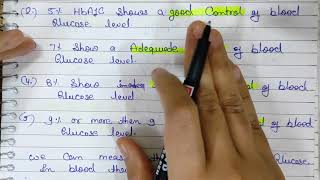 (2.) 5% HbA1C Shows a good Control of blood
Glucose level.
7% Show a Adequade of blood
Glucose level.
(4.) 8% Show of blood
Glucose level
9% or more then 9 of blood
Glucose level.
We Can meas Glucose.
In blood thro